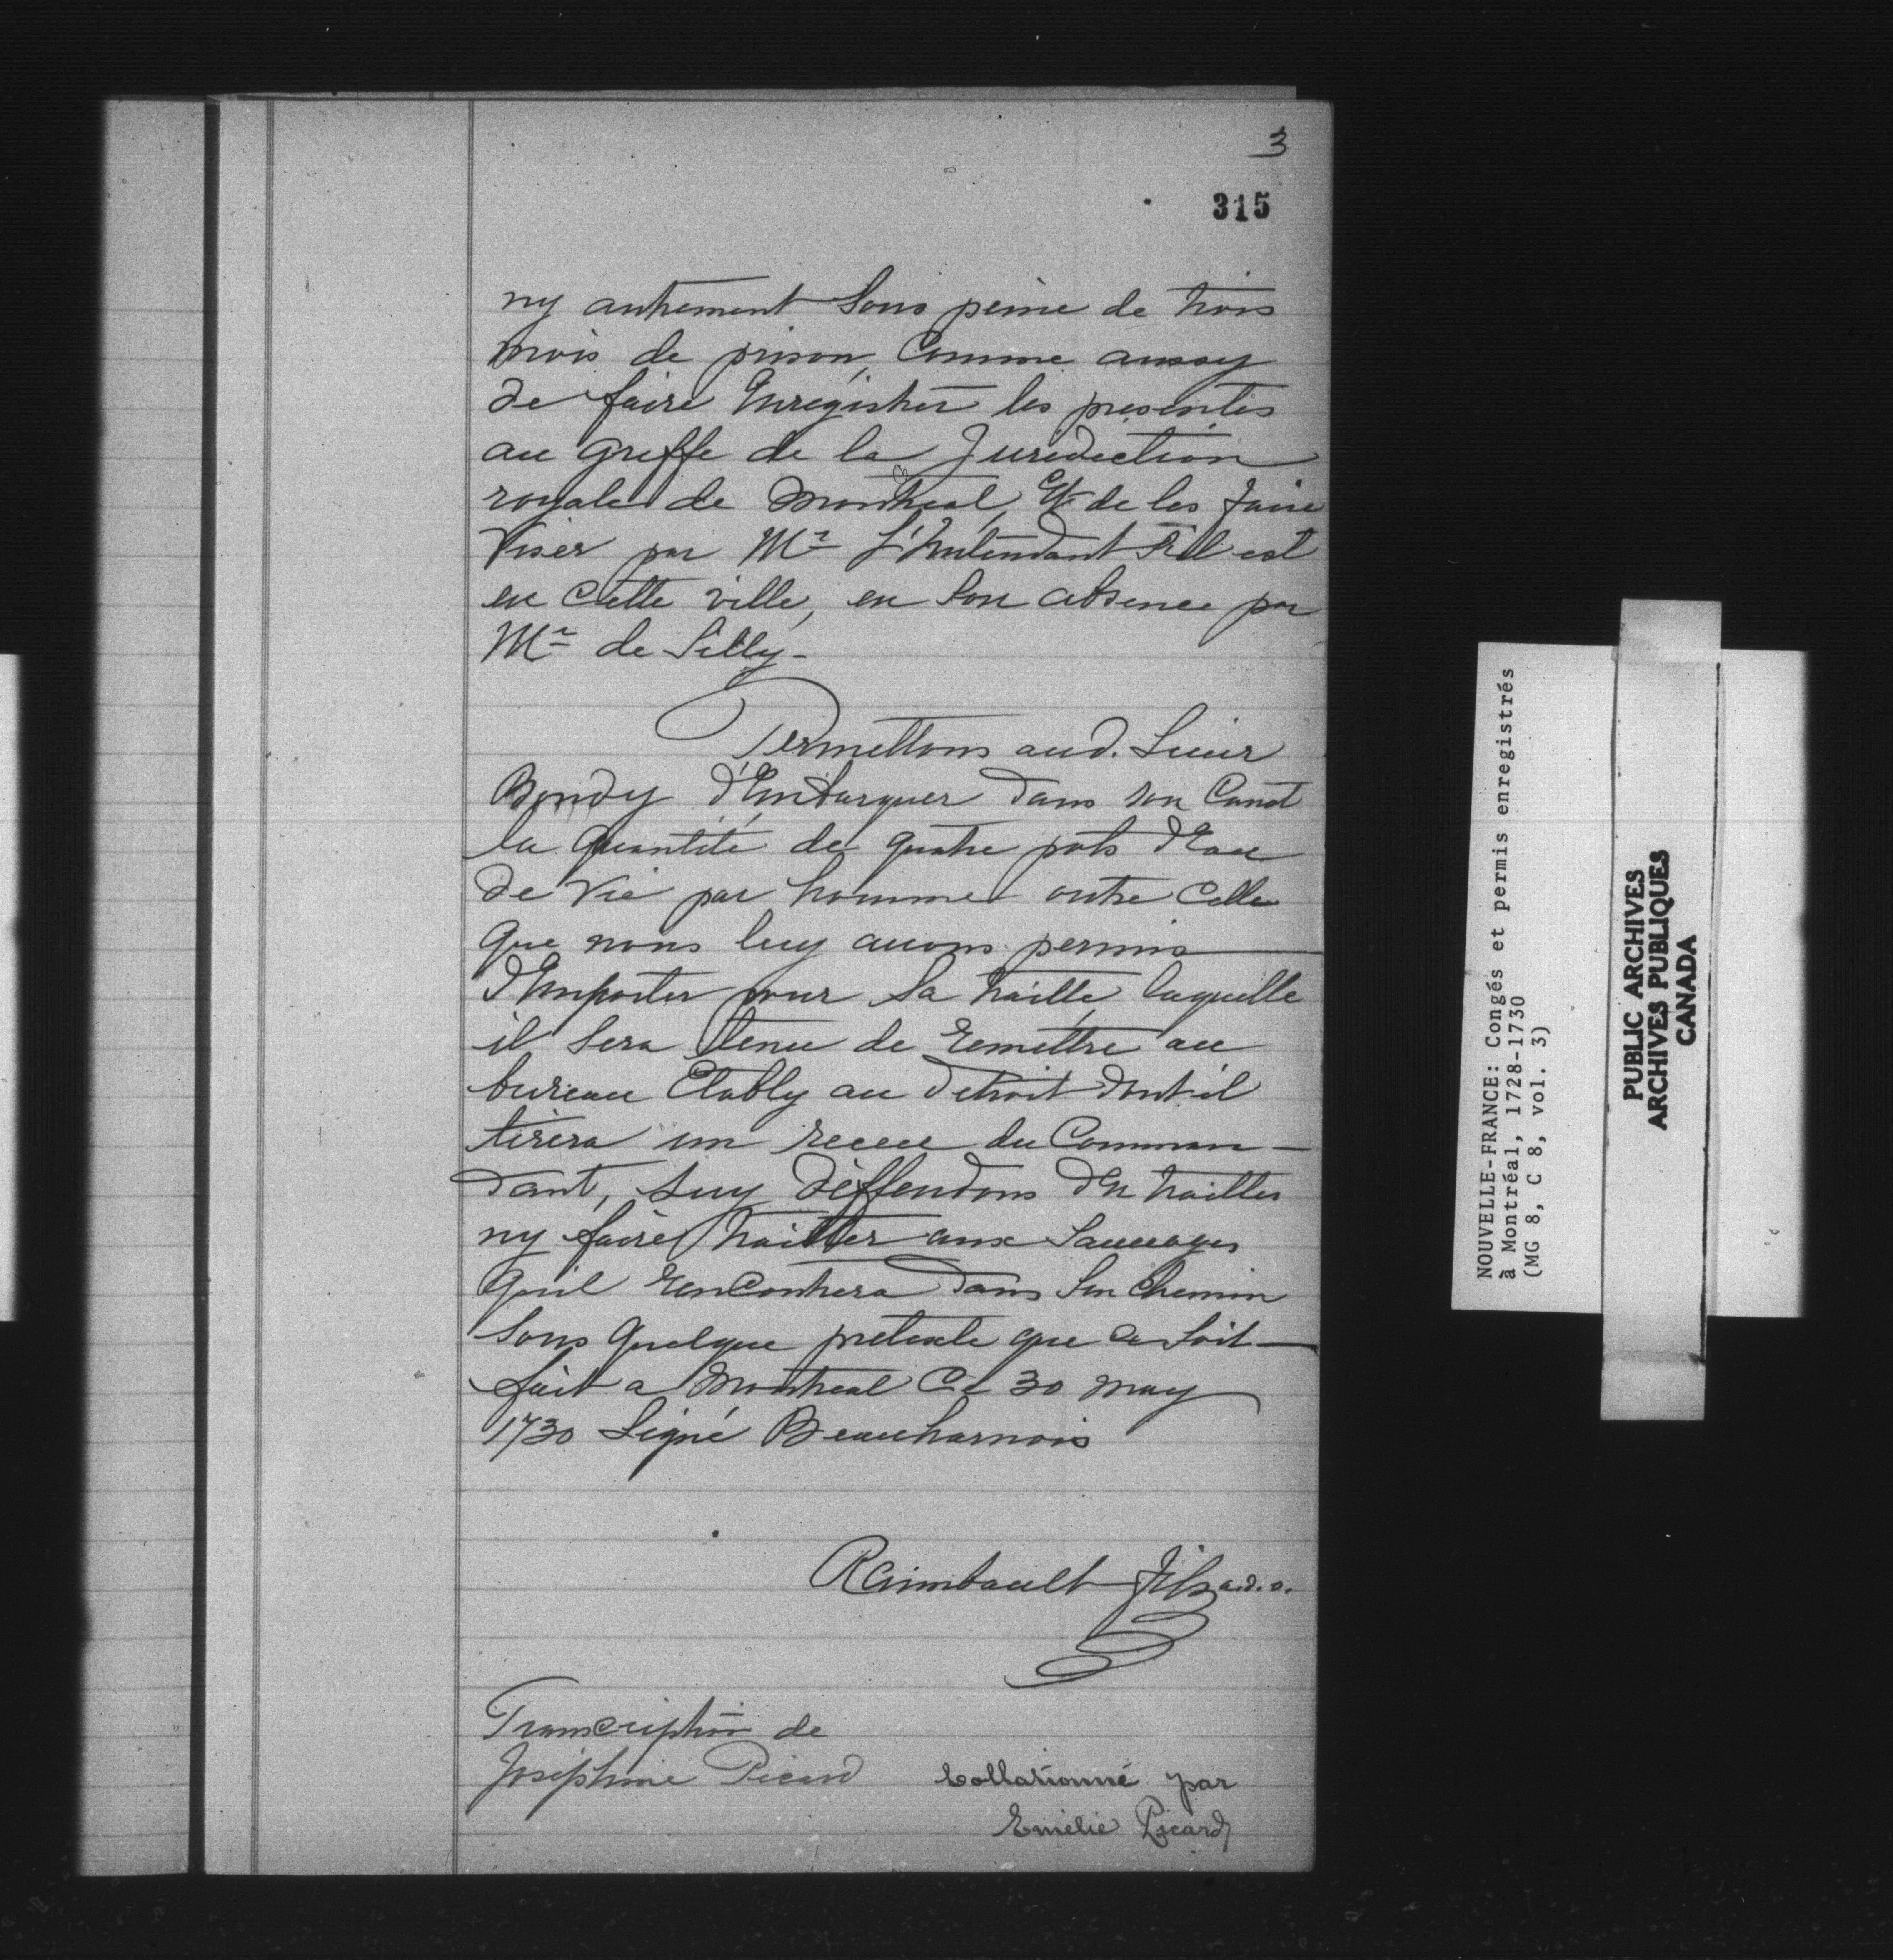 3
315
ny autrement sous peine de trois
mois de prison, Comme aussy
de faire Enregistrer les presentes
au greffe de la Juridiction
royale de Montreal, Et de les faire
Viser par Mr L'Intendant S'il est
en Cette ville, en Son absence par
Mr de Silly-
Permettons aud. Sieur
Bondy d'Embarquer dans son Canot
la quantité de quatre pots d'Eau
de Vie par homme outre Celle
que nous luy auons permis
d'Emporter pour Sa traitte, laquelle
il Sera tenu de Remettre au
bureau Etably au Detroit dont il
tirera un receu du Comman-
dant, Luy Deffendons d'En traitter
ny faire traitter aux Sauuages
qu'il Rencontrera dans Son Chemin
Sous quelque pretexte que ce Soit-
fait a Montreal Ce 30 may
1730 Signé Beauharnois
Raimbault fils a.d.s.
Transcription de
Joséphine Picard
Collationné par
Emélie Picard
NOUVELLE-FRANCE: Congés et permis enregistrés
à Montréal, 1728-1730
(MG 8, C 8, vol. 3)
PUBLIC ARCHIVES
ARCHIVES PUBLIQUES
CANADA